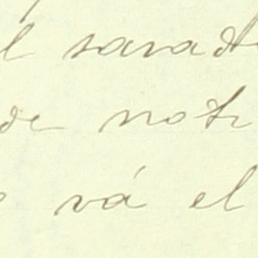 l saradt
de noti
vá el